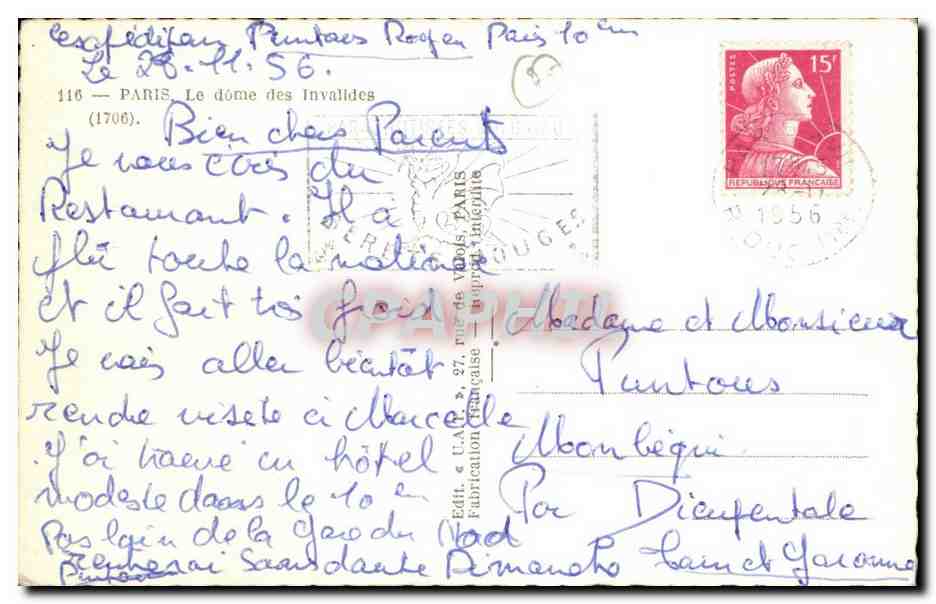 Puntous Roger Paris 10em
Le 28.11.56.
116 — PARIS. Le dôme des Invalides
(1706).
Bien chers Parents
Je vous écris du
Restaurant. Il a
plû toute la matinée
et il fait très froid
Je vais aller bientôt
rendre visite à Marcelle
J'ai trouvé un hôtel
modeste dans le 10em
Pas loin de la gare du Nord
rentrerai sans doute Dimanche
Edit. « U.A.P. », 27, rue de Valois, PARIS
Fabrication française — Reprod. interdite
CPAPHIL
POSTES
15F
REPUBLIQUE FRANÇAISE
28-11
1956
ROUGES
Madame et Monsieur
Puntous
Monbéqui
Par Dieupentale
Tarn et Garonne